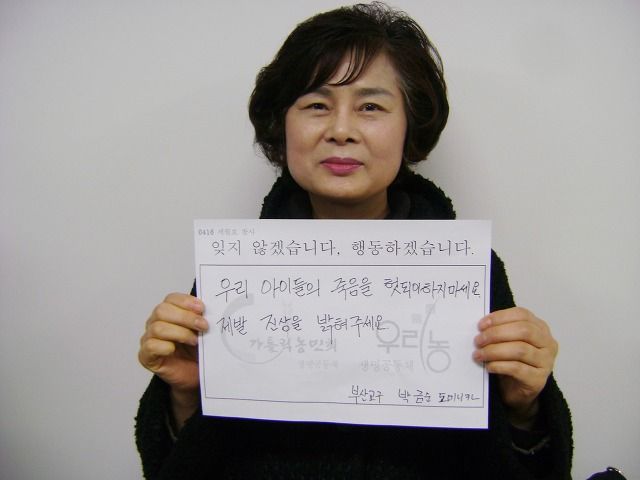 0416 세월호 참사
잊지 않겠습니다, 행동하겠습니다.
우리 아이들의 죽음을 헛되이하지마세요
제발 진상을 밝혀주세요
가톨릭농민회 우리농
생명공동체 생명공동체
부산교구 박금순 도미니카